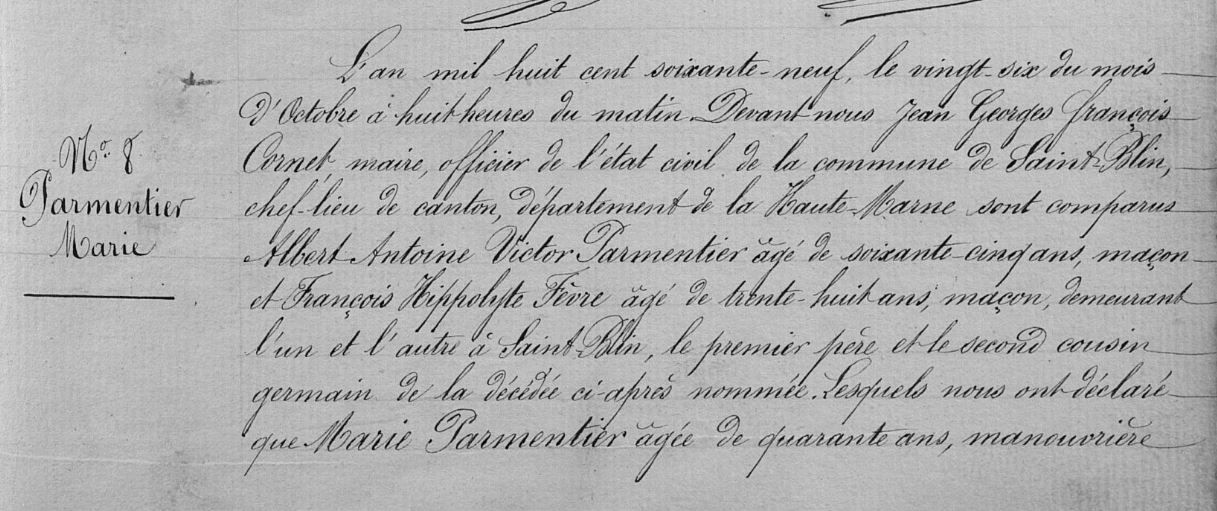 L'an mil huit cent soixante-neuf, le vingt-six du mois
d'Octobre à huit heures du matin. Devant nous Jean Georges françois
Cornet, maire, officier de l'état civil de la commune de Saint-Blin,
chef-lieu de canton, département de la Haute-Marne sont comparus
Albert Antoine Victor Parmentier âgé de soixante-cinq ans, maçon
et François Hippolyte Fèvre âgé de trente-huit ans, maçon, demeurant
l'un et l'autre à Saint-Blin, le premier père et le second cousin
germain de la décédée ci-après nommée. Lesquels nous ont déclaré
que Marie Parmentier âgée de quarante ans, manouvrière
No. 8
Parmentier
Marie